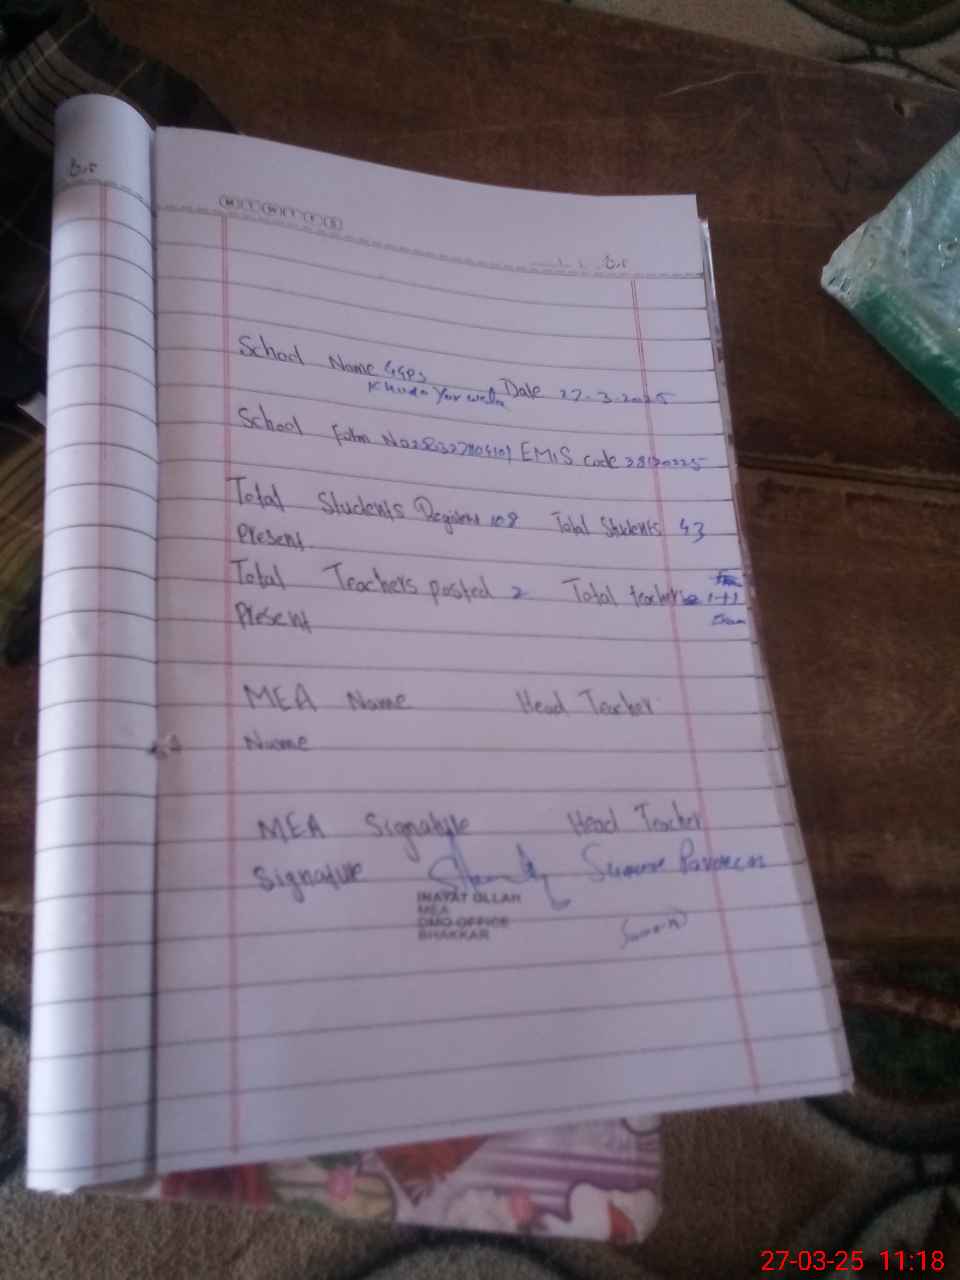 MINUTES
School Name GGPS Date 27-3-2025
Khuda Yar wala
School Form No EMIS code
Total Students Register 108 Total Students 43
Present
Total Teachers posted 2 Total teachers 1+1
Present Exam
MEA Name Head Teacher
Name
MEA Signature Head Teacher
Signature Parveen
INAYAT ULLAH
MEA
DMO OFFICE
BHAKKAR
27-03-25 11:18